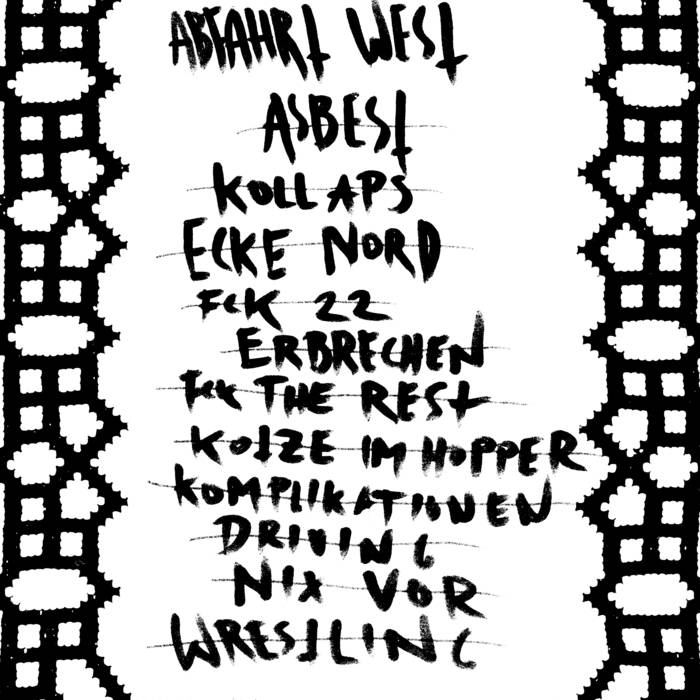 ABFAHRT WEST
ASBEST
KOLLAPS
ECKE NORD
FCK 22
ERBRECHEN
FCK THE REST
KOTZE IM HOPPER
KOMPLIKATIONEN
DRIVING
NIX VOR
WRESTLING